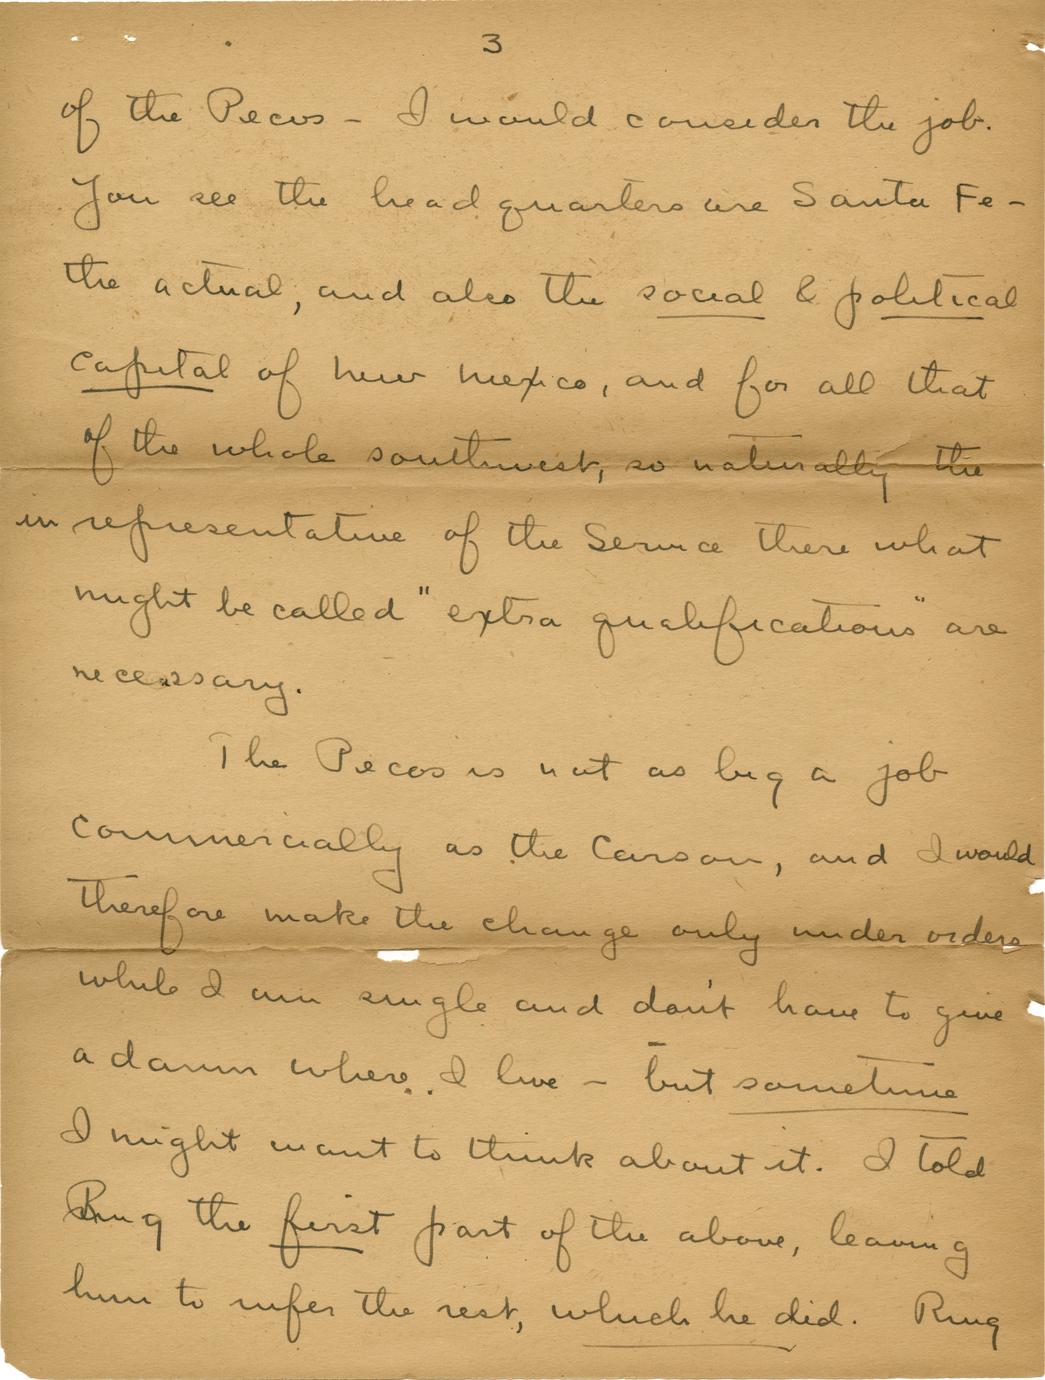 3
of the Pecos – I would consider the job.
You see the headquarters are Santa Fe –
the actual, and also the social & political
capital of new mexico, and for all that
of the whole southwest, so naturally the
in representative of the Service there what
might be called "extra qualifications" are
necessary.
The Pecos is not as big a job
commercially as the Carson, and I would
therefore make the change only under orders
while I am single and don't have to give
a damn where I live – but sometime
I might want to think about it. I told
Ring the first part of the above, leaving
him to infer the rest, which he did. Ring